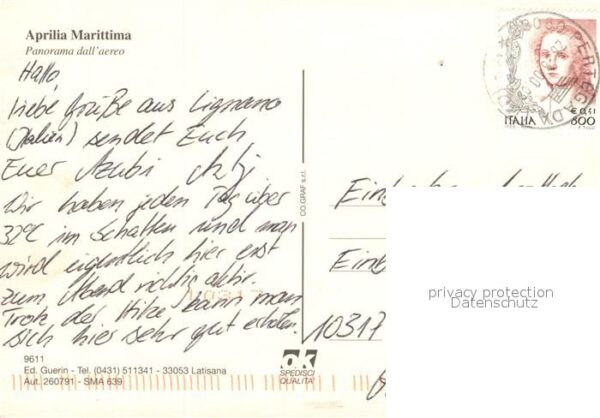 Aprilia Marittima
Panorama dall'aereo
Hallo,
liebe Grüße aus Lignano
(Italien) sendet Euch
Euer Azubi
Wir haben jeden Tag über
32°C im Schatten und man
wird eigentlich hier erst
zum Abend richtig aktiv.
Trotz der Hitze kann man
sich hier sehr gut erholen.
9611
Ed. Guerin - Tel. (0431) 511341 - 33053 Latisana
Aut. 260791 - SMA 639
CO.GRAF s.r.l.
OK
SPEDISCI
QUALITA'
ITALIA
€ 0,41
600
10317
privacy protection
Datenschutz